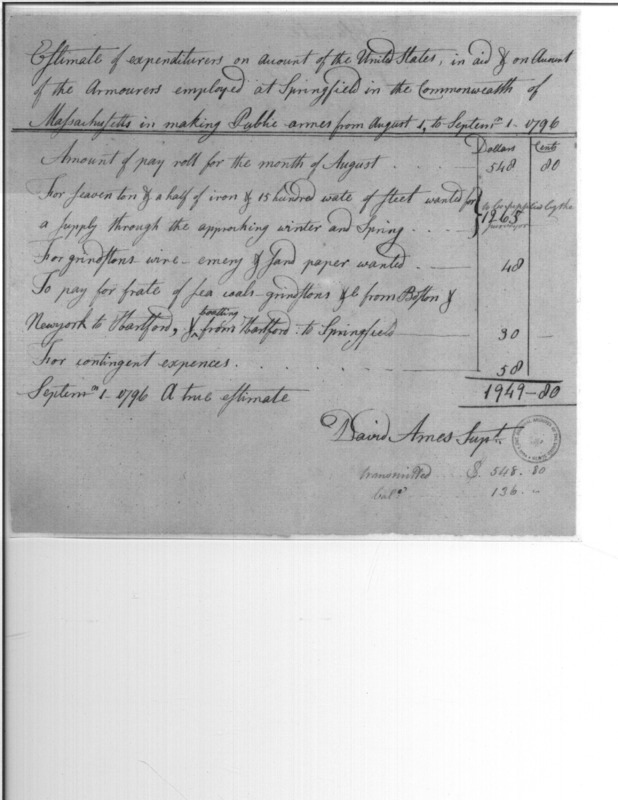 Estimate of expenditurers on acount of the United States, in aid & on Acount
of the Armourers employed at Springfield in the Commonwealth of
Massachusetts in making Public armes from August 1, to Septemr 1 - 1796
Dollars Cents
Amount of pay roll for the month of August . . . . 548 80
For seaven ton & a half of iron & 15 hundred wate of steel wanted for
a supply through the approching winter and Spring . . . 1265
to be supplied by the
For grindstons wire - emery & sand paper wanted . 48
To pay for frate of sea coals - grindstons &c from Boston &
Newyork to Hartford, & boatting from Hartford to Springfield 30
For contingent expences . . . . . . . 58
Septemr 1 - 1796 A true estimate 1949 - 80
David Ames Supt.
transmitted $. 548. 80
136. "